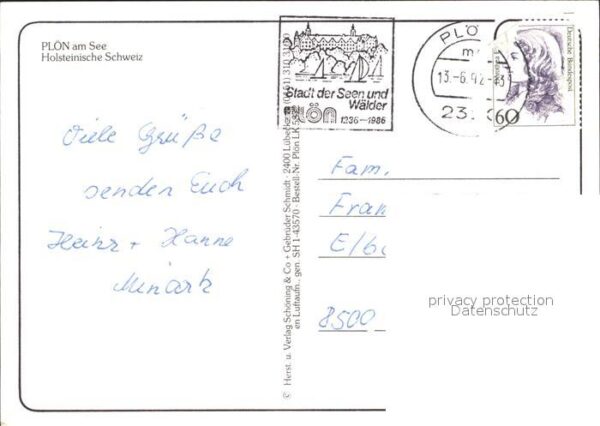 PLÖN am See
Holsteinische Schweiz
Stadt der Seen und
Wälder
plön 1236-1986
PLÖ
13.-6.92-
23
Deutsche Bundespost
60
Viele Grüße
senden Euch
Heinz + Hanne
© Herst. u. Verlag Schöning & Co + Gebrüder Schmidt · 2400 Lübeck
en Luftaufn., gen. SH 1-43570 · Bestell-Nr. Plön
Fam.
Fran
8500
privacy protection
Datenschutz